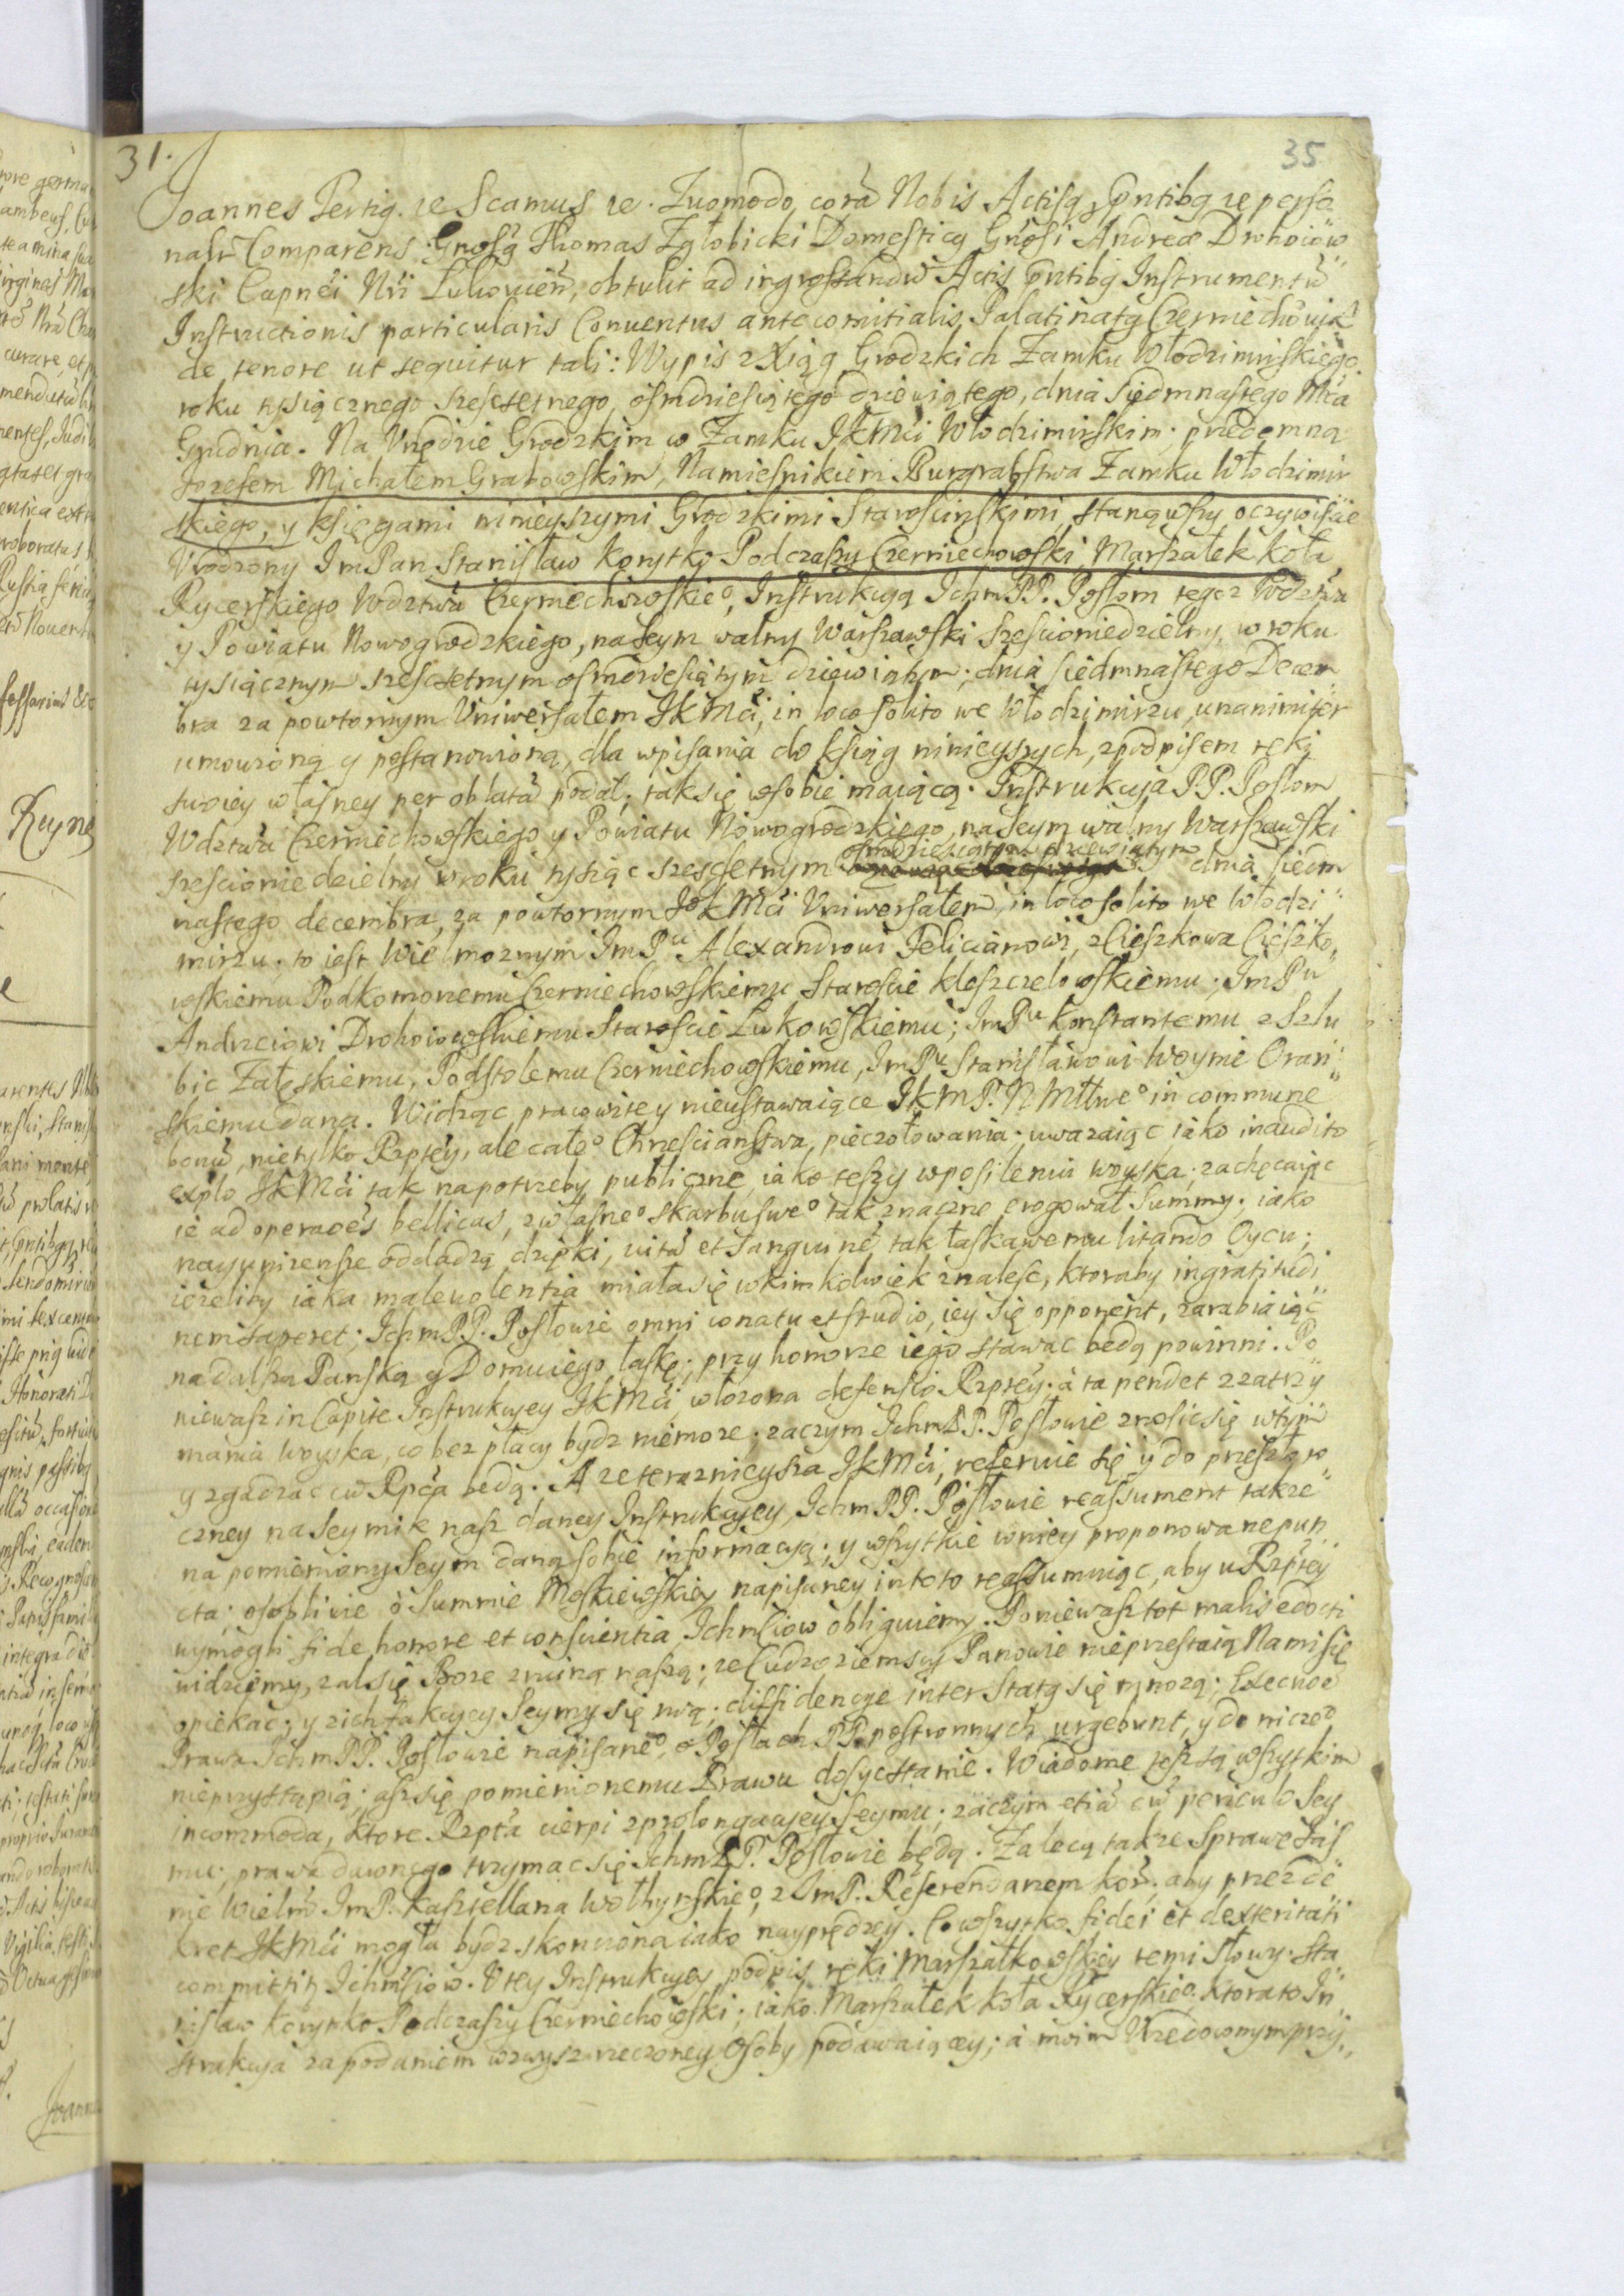 31.
35
Joannes Tertiꝗ. ꝛc Scamus ꝛc. Quomodo corā Nobis Actisq̨ p̄ntibꝗ ꝛc perso
nalr̄ Comparens Gnośꝗ Thomas Zgłobicki Domesticꝗ Gnośi Andreæ Drohoiow
ski Capnei Nri Lukovien̄, obtulit ad ingrossandū Actis p̄ntibꝗ Instrumentū
Instructionis particularis Conventus antecomitialis Palatinatꝗ Czerniechovien̄
de tenore ut sequitur tali: Wypis z Xiąg Grodzkich Zamku Włodzimirskiego
roku tysiącznego szescsetnego, osmdziesiątego dziewiątego, dnia siedmnastego Mca
Grudnia. Na Vrędzie Grodzkim, w Zamku JKMći Włodzimirskim; przedemną
Jozefem Michałem Grabowskim, Namiesnikiem Burgrabstwa Zamku Włodzimir
skiego, y księgami ninieyszymi Grodzkimi Staroscinskimi, stanąwszy oczywiscie
Vrodzony ImPan Stanisław Korytko Podczaszy Czerniechowski, Marszałek koła
Rycerskiego Wdztwa Czerniechowskieo, Instrukcyą IchmPP. Posłom tegoz Wdztwa
y Powiatu Nowogrodzkiego, na Seym walny Warszawski szescioniedzielny, w roku
tysiącznym szescsetnym osmdziesiątym dziewiątym; dnia siedmnastego Decem
bra za powtornym Vniwersałem JKMći, in loco solito we Włodzimirzu, unanimiter
umowioną y postanowioną, dla wpisania do ksiąg ninieyszych, z podpisem ręki
swoiey własney per oblatā podał; tak się w sobie maiącą. Instrukcya PP. Posłom
Wdztwa Czerniechowskiego y Powiatu Nowogrodzkiego, na Seym walny Warszawski
szescioniedzielny w roku tysiąc szescsetnym osmdziesiątym dziewiątym dnia siedm
nastego decembra, za powtornym JoKMći Vniwersałem, in loco solito we Włodzi
mirzu. to iest Wielmoznym ImPu Alexandrowi Felicianowi, z Cieszkowa Cieszko,
wskiemu Podkomorzemu Czerniechowskiemu Staroscie kloszczelowskiemu; ImPu
Andrzeiowi Drohoiowskiemu Staroscie Łukowskiemu; ImPu Konstantemu z Szlu
bic Załęskiemu, Podstolemu Czerniechowskiemu, ImPu Stanisławowi Woynie Oran
skiemu dana. Widząc pracowite y nieustawaiące JKmP. N. Młlweo in commune
bonū, nie tylko Rzptey, ale całeo Chrescianstwa, pieczołowania; uwazaiąc iako inaudito
explo JKMći tak na potrzeby publiczne, iako teszy w posileniu woyska; zachęcaiąc
ie ad operaoēs bellicas, z własneo skarbu sweo tak znaczne erogował Summy; iako
nayunizensze oddadzą dzięki, vitā et sangvinē, tak łaskawemu litando Oycu;
iezeliby iaka malevolentia miała się w kimkolwiek znalesc, ktoraby ingratitudi
nem saperet; IchmPP. Posłowie omni conatu et studio, iey się opponent, zarabiaiąc
na dalszą Panską y Domu iego łaskę; przy honorze iego stawac będą powinni. Po
niewasz in Capite Instrukcyey JKMći włozona defensio Rzptey; à ta pendet z zatrzy
mania woyska, co bez płacy bydz niemoze; zaczym IchmPP. Posłowie znosic się w tym
y zgadzac cū Rpća będą. A ze teraznieysza JKMći, referuie się y do przeszłoro
czney na Seymik nasz daney Instrukcyey, IchmPP. Posłowie reassument takze
na pomieniony Seym daną sobie informacyą; y wszytkie w niey proponowane pun
cta; osobliwie o Summie Moskiewskiey napisaney in toto reassumuiąc, aby u Rzptey
wymogli fide honore et conscientia Ichmściow obliguiemy. Poniewasz tot malis edocti
widziemy, zal się Boze z ruiną naszą; ze Cudzoziemscy Panowie nieprzestaią Nami się
opiekac; y z ich fakcyey Seymy się rwą; diffidencye inter Statꝗ się mnozą; Execuoē
Prawa IchmPP. Posłowie napisaneo, o Posłach PP. postronnych urgebunt, y do niczeo
nieprzystąpią; asz się pomienionemu Prawu dosyc stanie. Wiadome tesz są wszytkim
incommoda, ktore Rzpta cierpi z prolongacyey Seymu; zaczym etiā cū periculo Sey
mu; prawa dawnego trzymac się IchmPP. Posłowie będą. Zalecą takze Sprawę Jaś
nie Wielm̄ ImP. Kasztellana Wołhynskieo, z ImP. Referendarzem kor̄; aby przez de
kret JKMći mogła bydz skonczona iako nayprędzey. Co wszytko fidei et dexteritati
committitꝛ Ichmściow. V tey Instrukcyey podpis ręki Marszałkowskiey temi słowy. Sta
nisław Korytko Podczaszy Czerniechowski; iako Marszałek koła Rycerskieo. Ktora to In
strukcya za podaniem wzwysz rzeczoney Osoby podawaiącey; à moim Vrzędowym przy,,